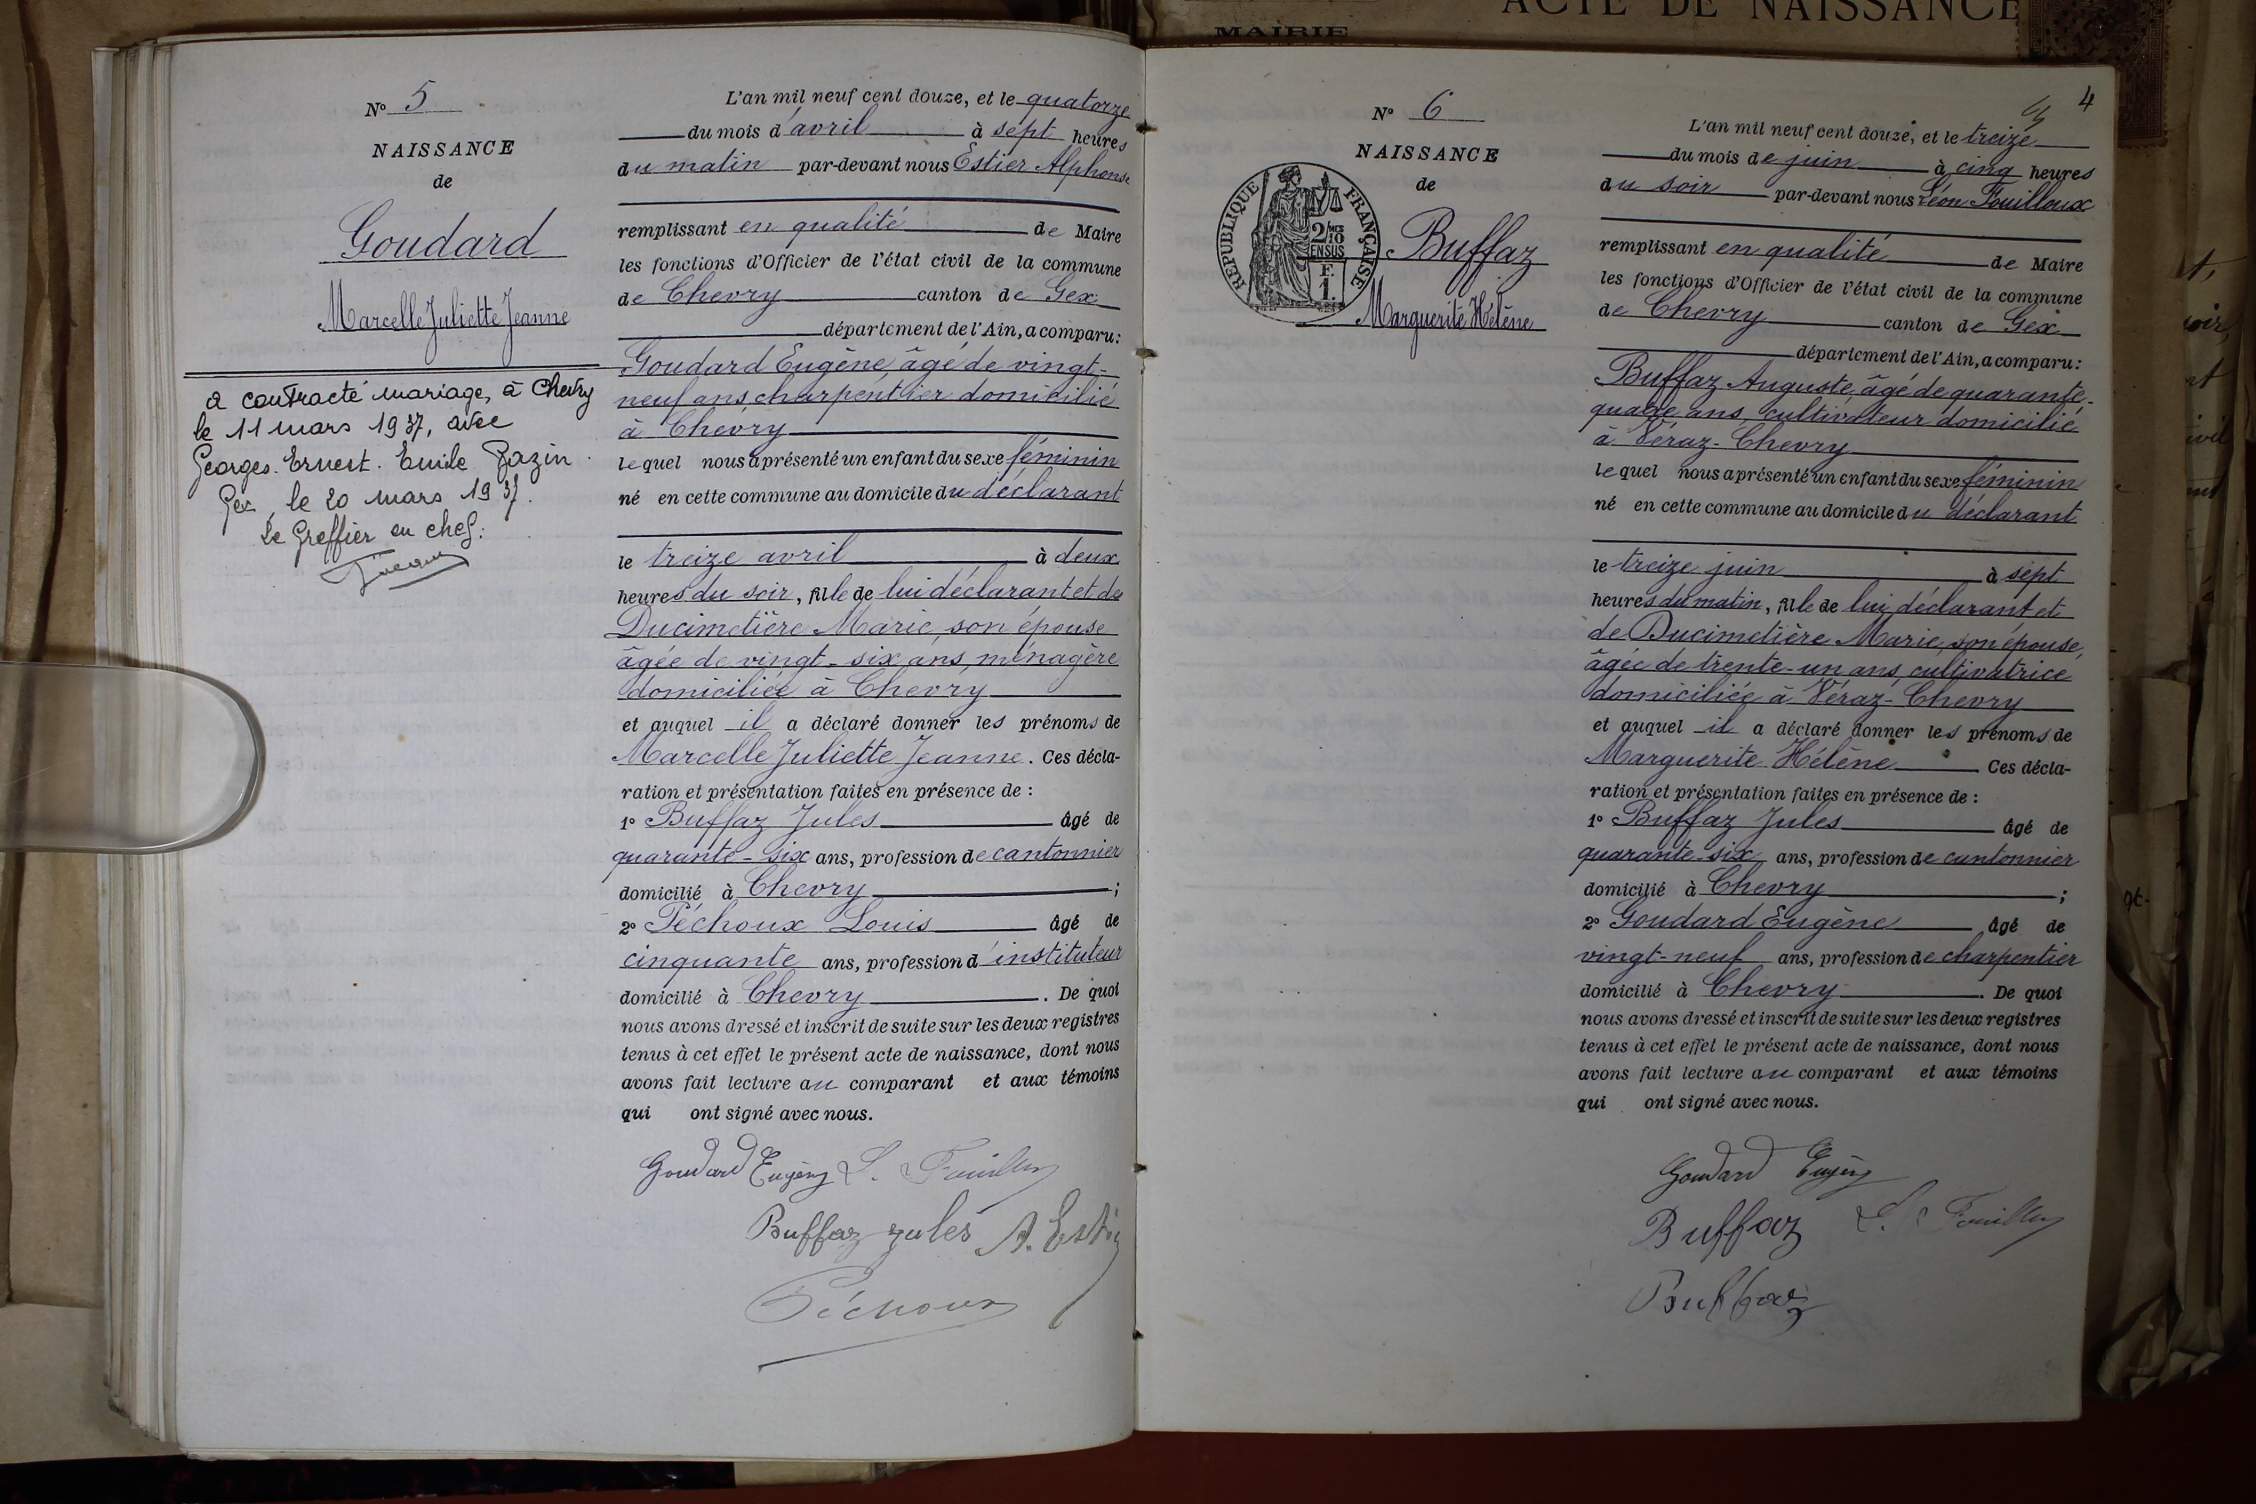 MAIRIE
ACTE DE NAISSANCE
N° 5
NAISSANCE
de
Goudard
Marcelle Juliette Jeanne
a contracté mariage, à Chevry
le 11 mars 1937, avec
Georges. Ernest. Emile
Gex, le 20 mars 1937.
Le Greffier en chef:
L'an mil neuf cent douze, et le quatorze
du mois d'avril à sept heures
du matin par-devant nous Estier Alphonse
remplissant en qualité de Maire
les fonctions d'Officier de l'état civil de la commune
de Chevry canton de Gex
département de l'Ain, a comparu:
Goudard Eugène, âgé de vingt-
neuf ans, charpentier domicilié
à Chevry
lequel nous a présenté un enfant du sexe féminin
né en cette commune au domicile du déclarant
le treize avril à deux
heures du soir, fille de lui déclarant et de
Ducimetière Marie, son épouse
âgée de vingt-six ans, ménagère
domiciliée à Chevry
et auquel il a déclaré donner les prénoms de
Marcelle Juliette Jeanne. Ces décla-
ration et présentation faites en présence de :
1° Buffaz Jules âgé de
quarante-six ans, profession de cantonnier
domicilié à Chevry ;
2° Péchoux Louis âgé de
cinquante ans, profession d'instituteur
domicilié à Chevry. De quoi
nous avons dressé et inscrit de suite sur les deux registres
tenus à cet effet le présent acte de naissance, dont nous
avons fait lecture au comparant et aux témoins
qui ont signé avec nous.
Goudard Eugène L. Fouilloux
Buffaz Jules A. Estier
Péchoux
4
N° 6
NAISSANCE
de
RÉPUBLIQUE FRANÇAISE
2/10 EN SUS
F.
1.
Buffaz
Marguerite Hélène
L'an mil neuf cent douze, et le treize
du mois de juin à cinq heures
du soir par-devant nous Léon Fouilloux
remplissant en qualité de Maire
les fonctions d'Officier de l'état civil de la commune
de Chevry canton de Gex
département de l'Ain, a comparu:
Buffaz Auguste, âgé de quarante-
quatre ans, cultivateur domicilié
à Véraz-Chevry
lequel nous a présenté un enfant du sexe féminin
né en cette commune au domicile du déclarant
le treize juin à sept
heures du matin, fille de lui déclarant et
de Ducimetière Marie, son épouse,
âgée de trente-un ans, cultivatrice
domiciliée à Véraz-Chevry
et auquel il a déclaré donner les prénoms de
Marguerite Hélène Ces décla-
ration et présentation faites en présence de :
1° Buffaz Jules âgé de
quarante-six ans, profession de cantonnier
domicilié à Chevry ;
2° Goudard Eugène âgé de
vingt-neuf ans, profession de charpentier
domicilié à Chevry. De quoi
nous avons dressé et inscrit de suite sur les deux registres
tenus à cet effet le présent acte de naissance, dont nous
avons fait lecture au comparant et aux témoins
qui ont signé avec nous.
Goudard Eugène
Buffaz L. Fouilloux
Buffaz